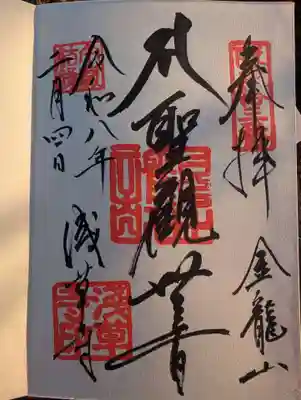 奉拝
金龍山
聖觀世音
令和八年
二月四日
浅草寺